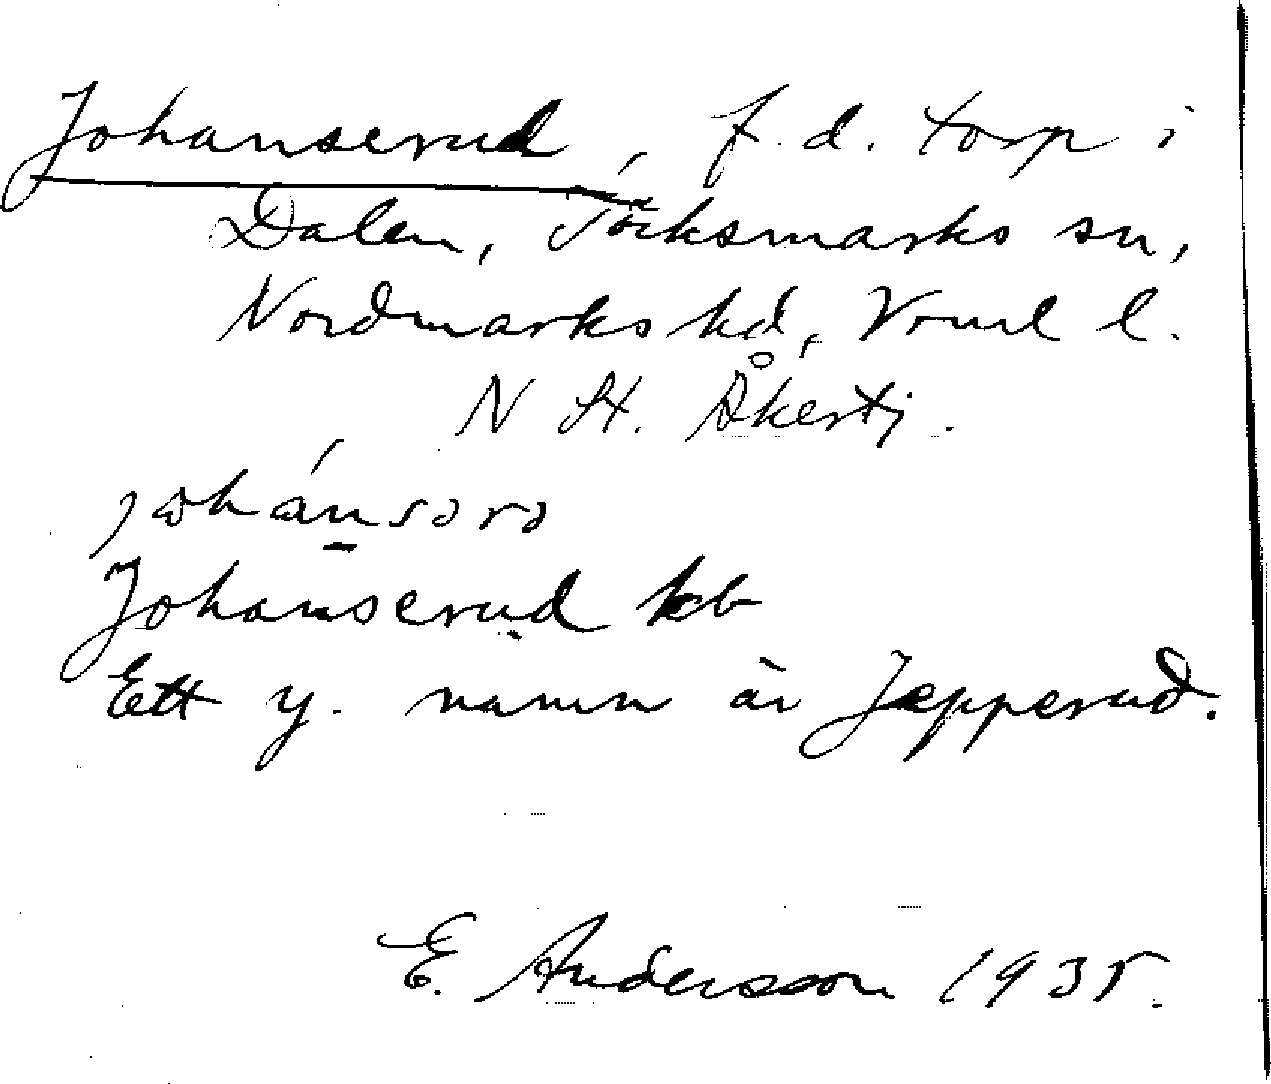 Johanserud, f.d. torp i
Dalen, Töcksmarks sn,
Nordmarks hd, Vrml l.
N St. Åkertj.
johánsərə
Johanserud kb
Ett y. namn är Jepperud.
E. Andersson 1935.